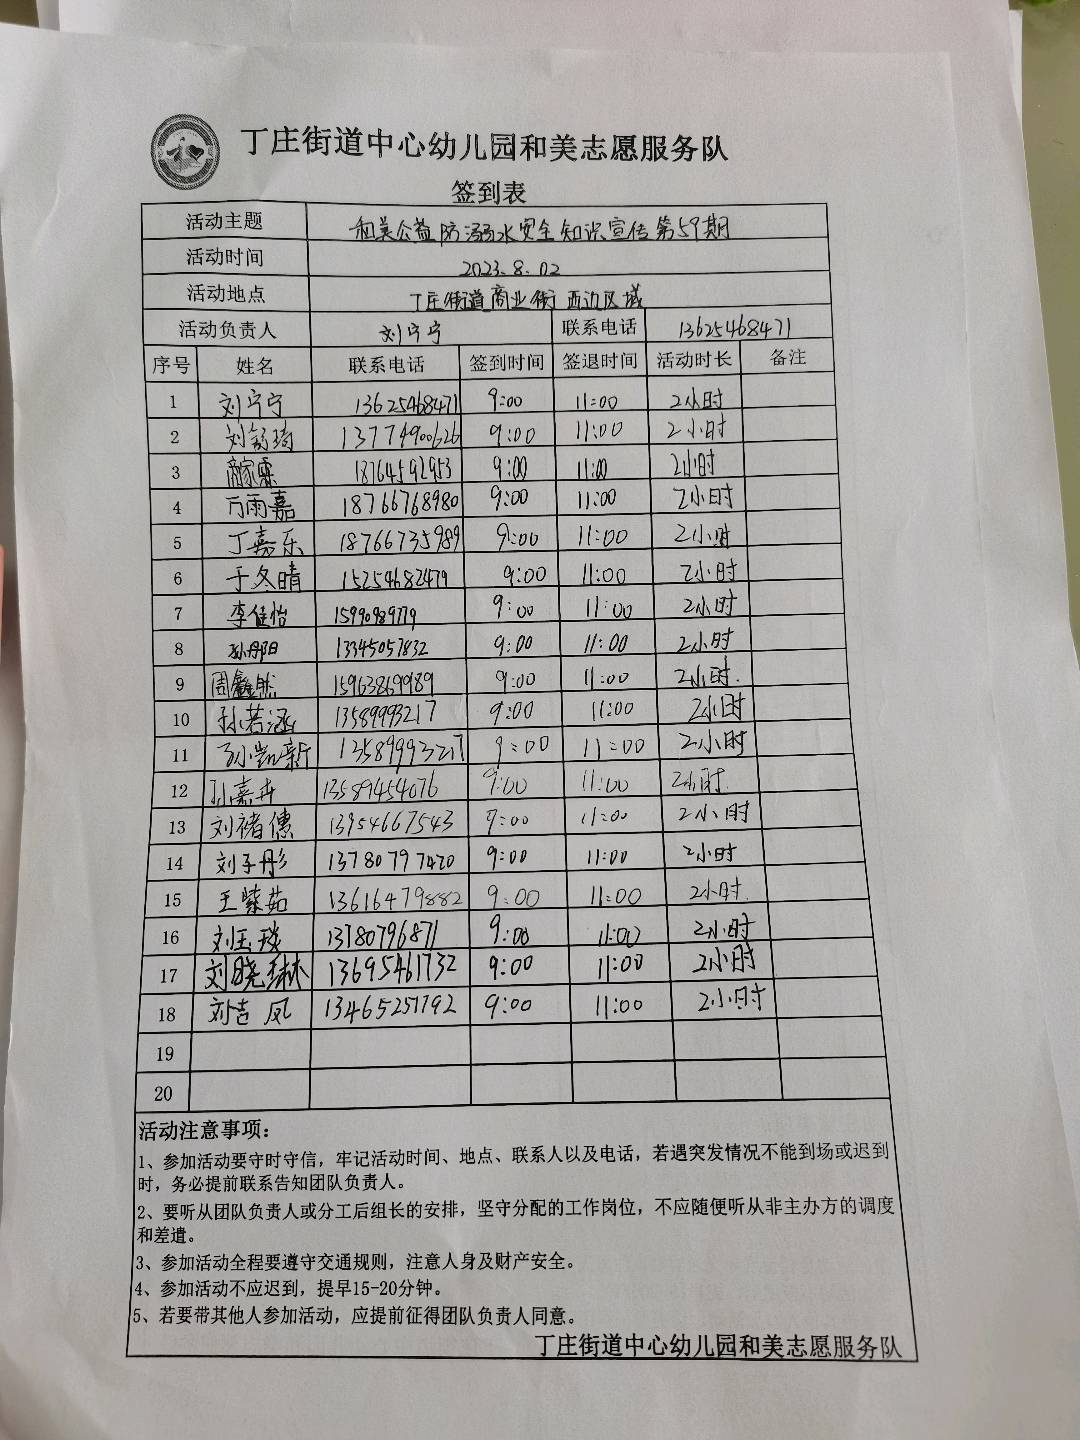 丁庄街道中心幼儿园和美志愿服务队
签到表
活动主题 和美公益防溺水安全知识宣传第59期
活动时间 2023.8.02
活动地点 丁庄街道商业街西边区域
活动负责人 刘宁宁 联系电话 13625468471
序号 姓名 联系电话 签到时间 签退时间 活动时长 备注
1 刘宁宁 13625468471 9:00 11:00 2小时
2 刘舒琦 13774900626 9:00 11:00 2小时
3 商家霖 18764592953 9:00 11:00 2小时
4 万雨嘉 18766768980 9:00 11:00 2小时
5 丁嘉乐 18766735989 9:00 11:00 2小时
6 于冬晴 15254682479 9:00 11:00 2小时
7 李佳怡 15990989779 9:00 11:00 2小时
8 孙丹阳 13345057832 9:00 11:00 2小时
9 周鑫然 15963869989 9:00 11:00 2小时.
10 孙若涵 13589993217 9:00 11:00 2小时
11 孙凯新 13589993217 9:00 11:00 2小时
12 孙嘉卉 13589454076 9:00 11:00 2小时.
13 刘禇德 13954667543 9:00 11:00 2小时
14 刘子彤 13780797420 9:00 11:00 2小时
15 王紫茹 13616479882 9:00 11:00 2小时.
16 刘玉琰 13780796871 9:00 11:00 2小时
17 刘晓琳 13695461732 9:00 11:00 2小时
18 刘吉凤 13465257792 9:00 11:00 2小时
19
20
活动注意事项：
1、参加活动要守时守信，牢记活动时间、地点、联系人以及电话，若遇突发情况不能到场或迟到
时，务必提前联系告知团队负责人。
2、要听从团队负责人或分工后组长的安排，坚守分配的工作岗位，不应随便听从非主办方的调度
和差遣。
3、参加活动全程要遵守交通规则，注意人身及财产安全。
4、参加活动不应迟到，提早15-20分钟。
5、若要带其他人参加活动，应提前征得团队负责人同意。
丁庄街道中心幼儿园和美志愿服务队